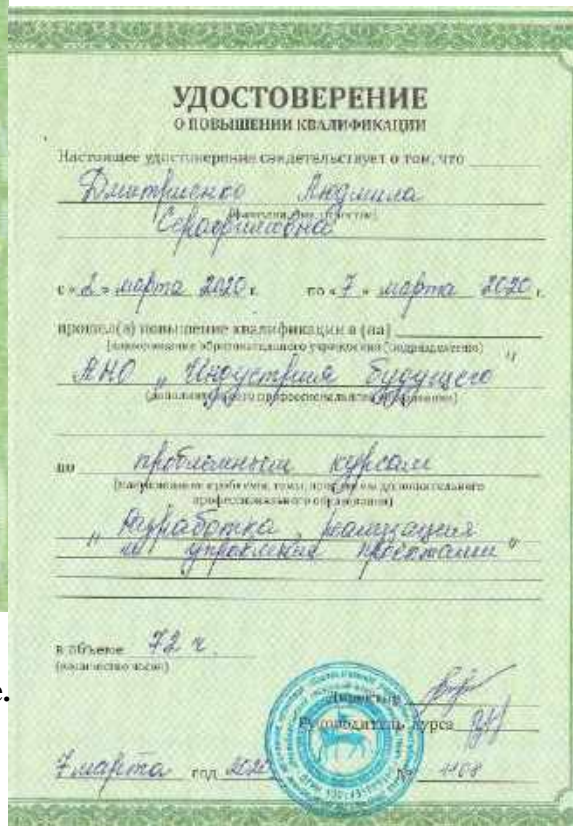 УДОСТОВЕРЕНИЕ
О ПОВЫШЕНИИ КВАЛИФИКАЦИИ
Настоящее удостоверение свидетельствует о том, что
Дмитриенко Людмила
Серафимовна
с « 2 » марта 2020 г. по « 7 » марта 2020 г.
прошел(а) повышение квалификации в (на)
(наименование образовательного учреждения (подразделения)
АНО „Индустрия будущего"
(дополнительного профессионального образования)
по проблемным курсам
(наименование проблемы, темы, программы дополнительного
профессионального образования)
„Разработка, реализация
и управление проектами"
в объеме 72 ч.
(количество часов)
Директор
Руководитель курса
7 марта год 2020 № 1108